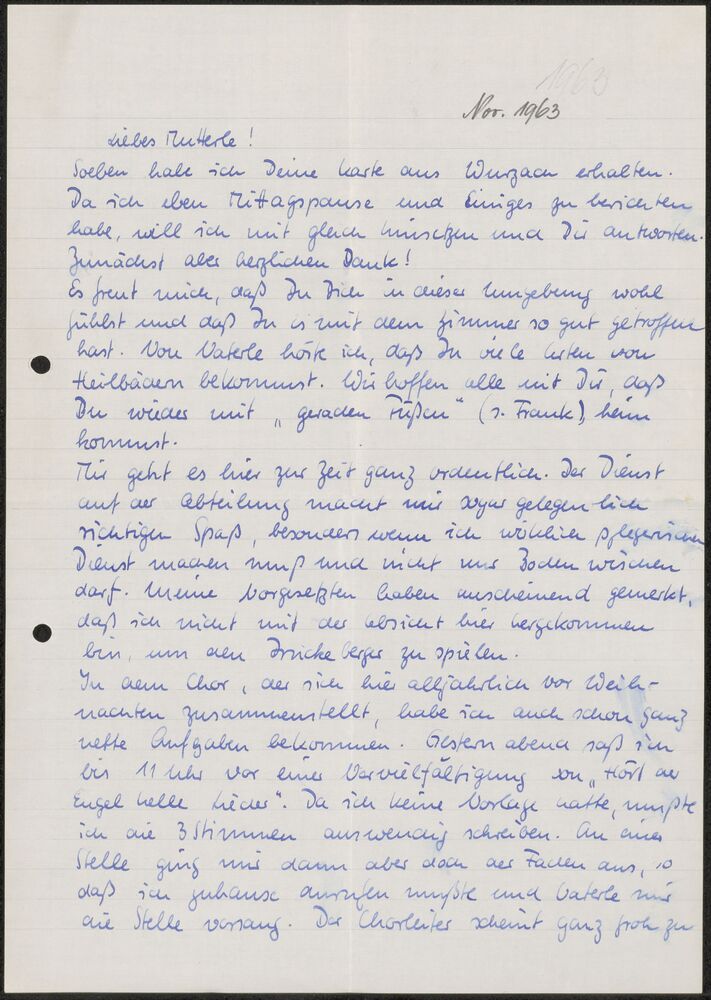 1963
Nov. 1963
Liebes Mutterle!
Soeben habe ich Deine Karte aus Wurzach erhalten.
Da ich eben Mittagspause und Einiges zu berichten
habe, will ich mit gleich hinsetzen und Dir antworten.
Zunächst aber herzlichen Dank!
Es freut mich, daß Du Dich in dieser Umgebung wohl
fühlst und daß Du es mit dem Zimmer so gut getroffen
hast. Von Vaterle hörte ich, daß Du viele Arten von
Heilbädern bekommst. Wir hoffen alle mit Dir, daß
Du wieder mit „geraden Füßen" (s. Frank), heim
kommst.
Mir geht es hier zur Zeit ganz ordentlich. Der Dienst
auf der Abteilung macht mir sogar gelegentlich
richtigen Spaß, besonders wenn ich wirklich pflegerischen
Dienst machen muß und nicht nur Boden wischen
darf. Meine Vorgesetzten haben anscheinend gemerkt,
daß ich nicht mit der Absicht hier hergekommen
bin, um den Drückeberger zu spielen.
In dem Chor, der sich hier alljährlich vor Weih-
nachten zusammenstellt, habe ich auch schon ganz
nette Aufgaben bekommen. Gestern abend saß ich
bis 11 Uhr vor einer Vervielfältigung von „Hört der
Engel helle Lieder". Da ich keine Vorlage hatte, mußte
ich die 3 Stimmen auswendig schreiben. An einer
Stelle ging mir dann aber doch der Faden aus, so
daß ich zuhause anrufen mußte und Vaterle mir
die Stelle vorsang. Der Chorleiter scheint ganz froh zu